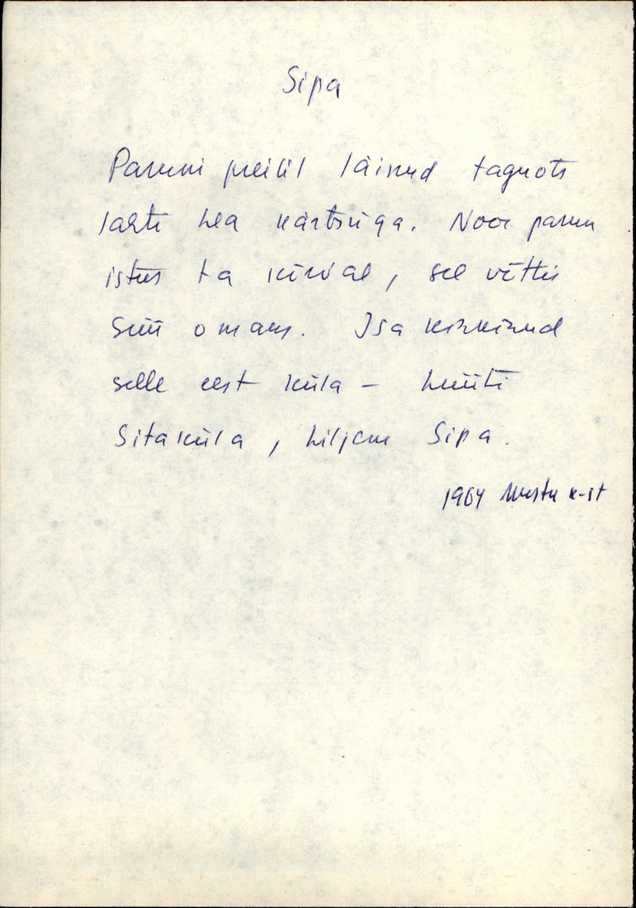 Sipa
Paruni preilil läinud tagnots
lahti hea kärtsuga. Noor parun
istus ta kõrval, see võttis
süü omaks. Isa kinkinud
selle eest küla - hüüti
Sitaküla, hiljem Sipa.
1964 k-st